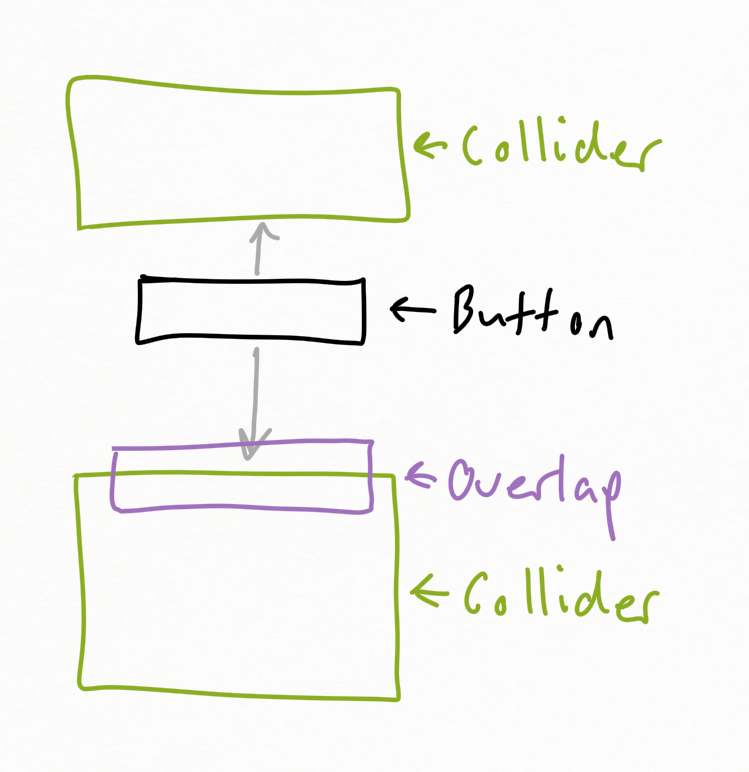 Collider
Button
Overlap
Collider